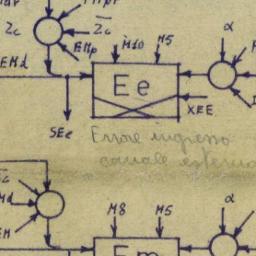 Zc
Zc
EMp
M10
M5
α
EMd
Ee
XEE
SEe
Errore ingresso
canale esterno
Md
EM
M8
M5
α
Em